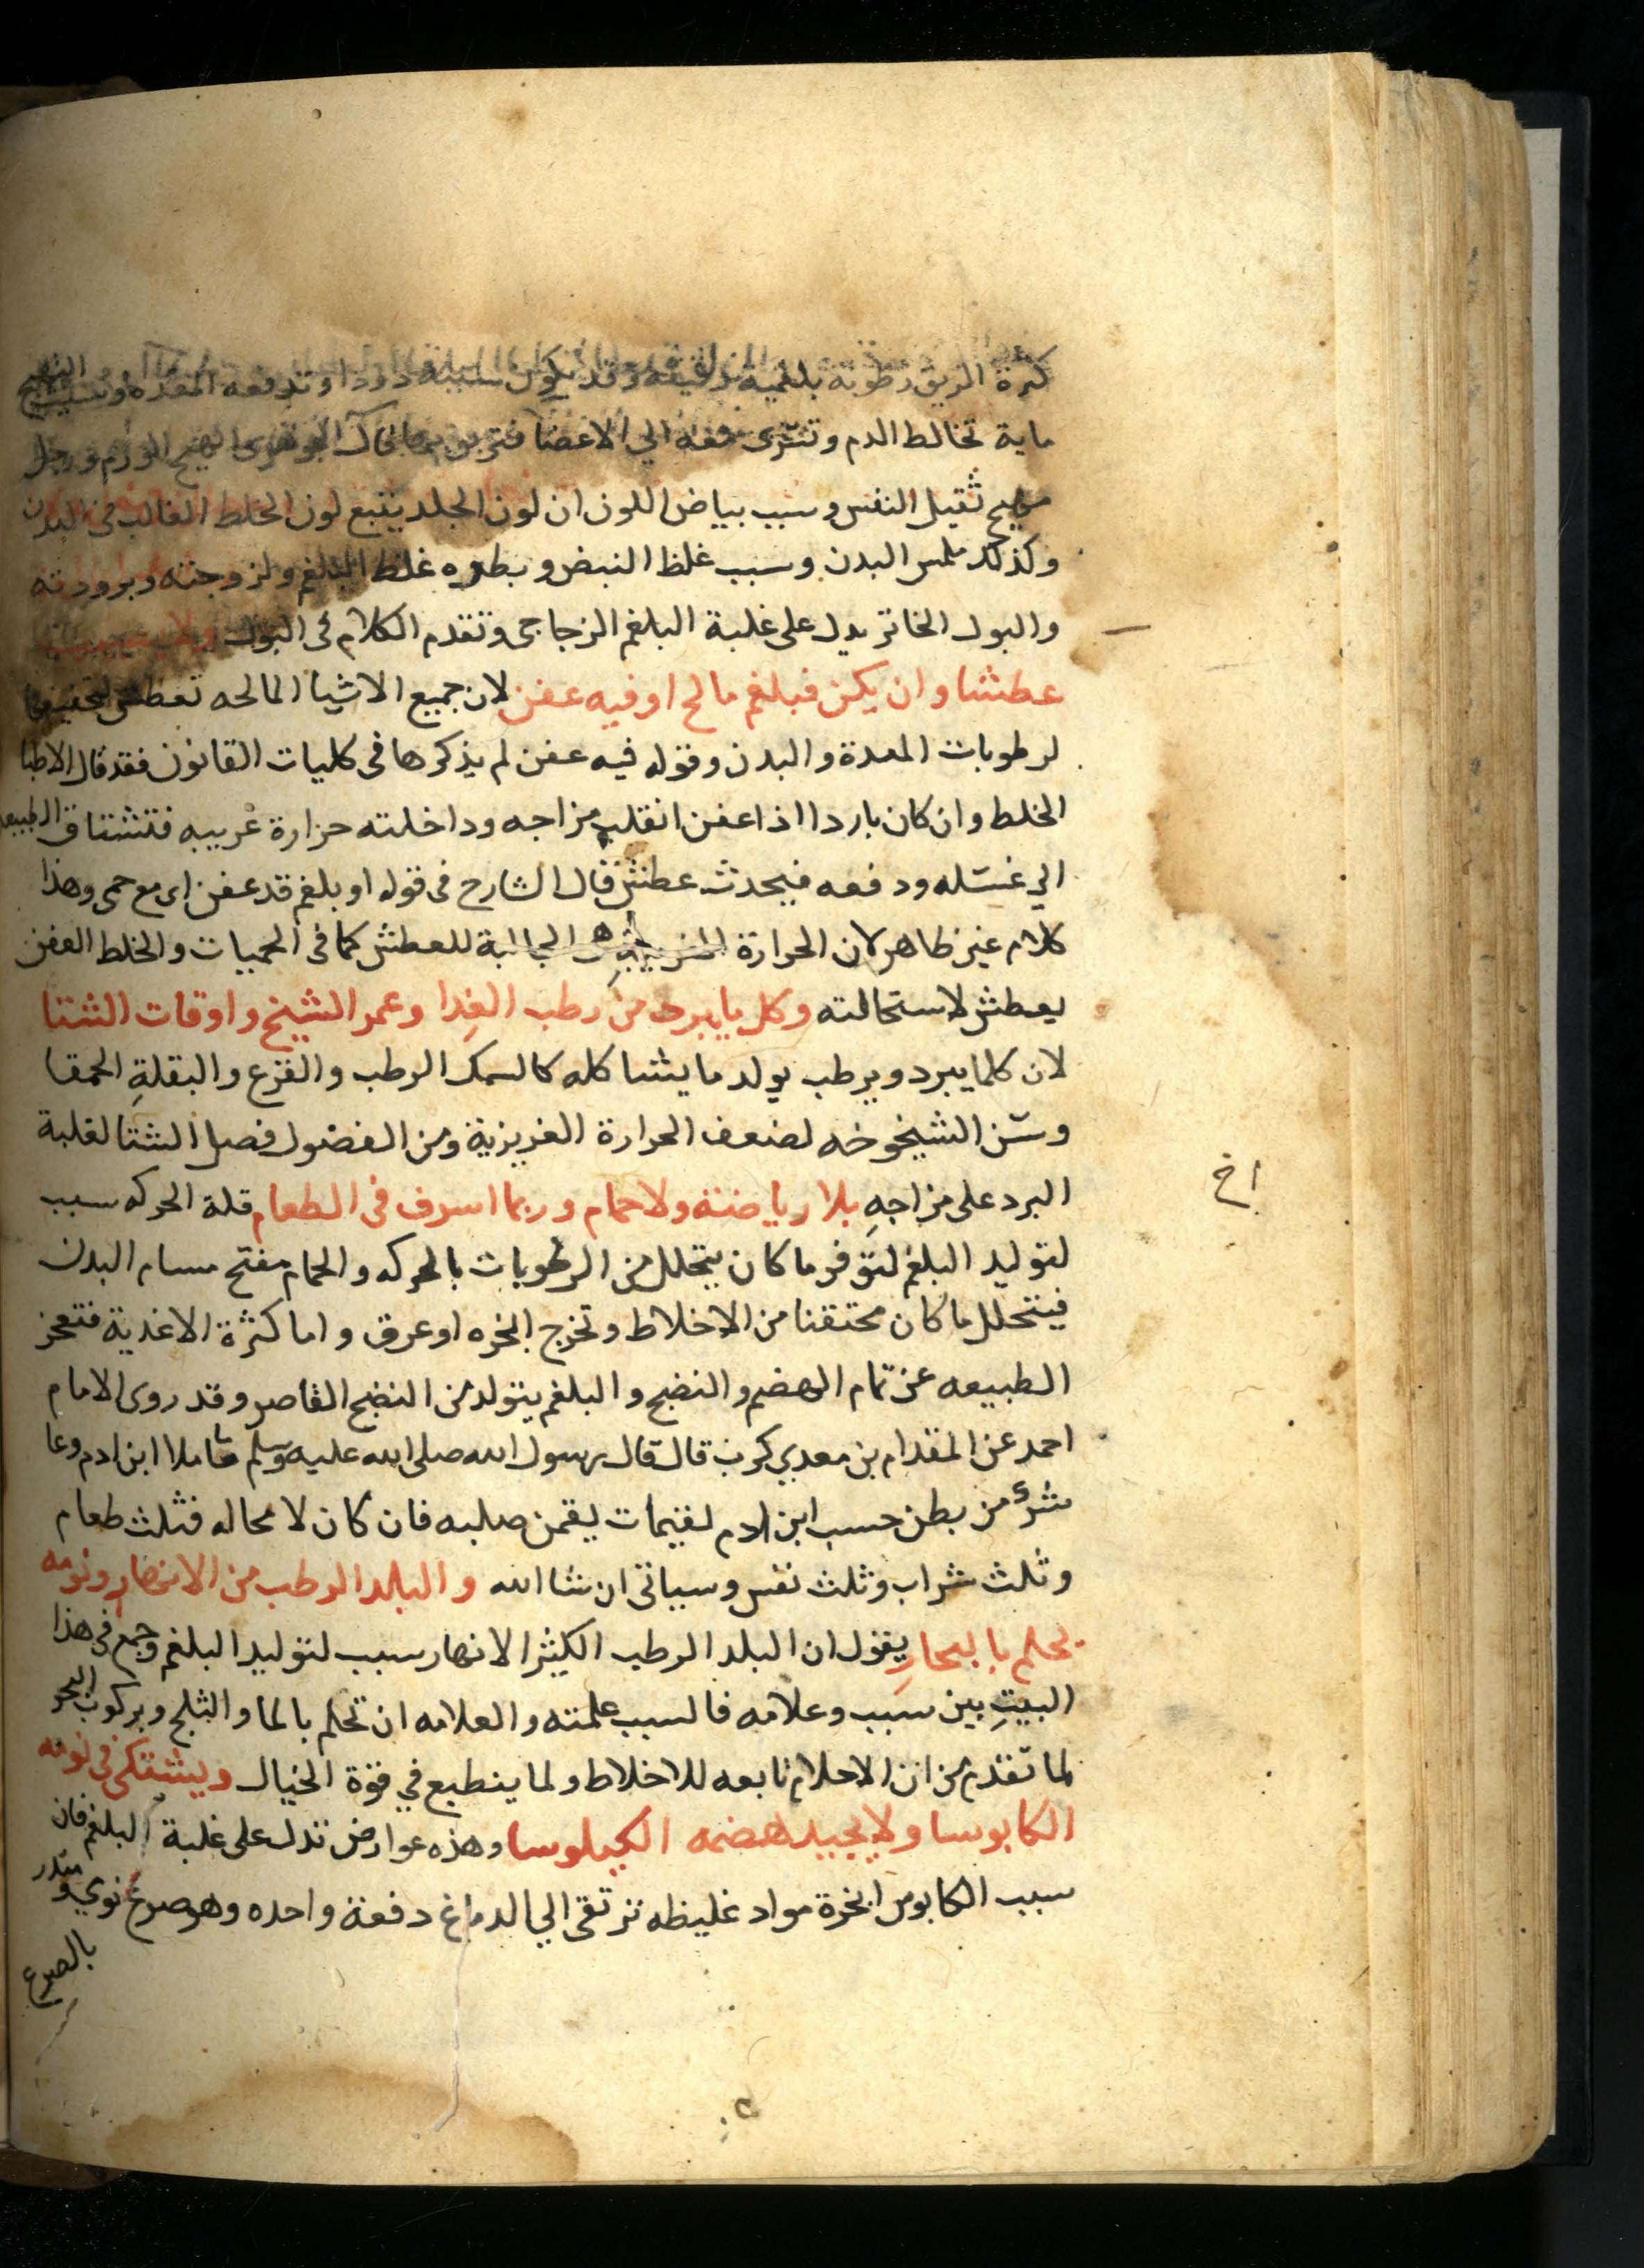 كثرة الريق رطوبة بلغمية رقيقة وقد يكون سببه دودا وتدفعه المعدة وسبب التهيج
ماية تخالط الدم وتترى معه الي الاعضا فتربو بها قال الجوهرى التهيج الورم ورجل
مهيج ثقيل النفس وسبب بياض اللون ان لون الجلد يتبع لون الخلط الغالب فى البدن
وكذلك ملمس البدن وسبب غلظ النبض وبطوه غلظ البلغم ولزوجته وبرودته
والبول الخاثر يدل على غلبة البلغم الزجاجى وتقدم الكلام فى البول
عطشا وان يكن فبلغم مالح او فيه عفن لان جميع الاشيا المالحه تعطش لتجفيفها
لرطوبات المعدة والبدن وقوله فيه عفن لم يذكرها فى كليات القانون فقد قال الاطبا
الخلط وان كان باردا اذا عفن انقلب مزاجه وداخلته حرارة غريبه فتشتاق الطبيعه
الي غسله ودفعه فيحدث عطش قال الشارح فى قوله او بلغم قد عفن اى مع حمى وهذا
كلام غير ظاهر لان الحرارة الغريبة هى الجالبة للعطش كما فى الحميات والخلط العفن
يعطش لاستحالته وكل ما يبرد من رطب الغدا وعمر الشيخ واوقات الشتا
لان كلما يبرد ويرطب يولد ما يشاكله كالسمك الرطب والقرع والبقلة الحمقا
وسن الشيخوخه لضعف الحرارة الغريزية ومن الفصول فصل الشتا لغلبة
البرد على مزاجه بلا رياضة ولا حمام وربما اسرف فى الطعام قلة الحركه سبب
لتوليد البلغم لتوفر ما كان يتحلل من الرطوبات بالحركه والحمام مفتح مسام البدن
فيتحلل ما كان محتقنا من الاخلاط وتخرج ابخره او عرق واما كثرة الاغذية فتعجز
الطبيعه عن تمام الهضم والنضج والبلغم يتولد من النضج القاصر وقد روى الامام
احمد عن المقدام بن معدي كرب قال قال رسول الله صلى الله عليه وسلم ما ملا ابن ادم وعا
شرء من بطن حسب ابن ادم لقيمات يقمن صلبه فان كان لا محاله فثلث طعام
وثلث شراب وثلث نفس وسياتى ان شا الله والبلد الرطب من الانهار ونومه
يحلم بالبحار يقول ان البلد الرطب الكثير الانهار سبب لتوليد البلغم وجمع فى هذا
البيت بين سبب وعلامه فالسبب علمته والعلامه ان تحلم بالما والثلج وبركوب البحر
لما تقدم من ان الاحلام تابعه للاخلاط ولما ينطبع في قوة الخيال ويشتكى فى نومه
الكابوسا ولا يجيد هضمه الكيلوسا وهذه عوارض تدل على غلبة البلغم فان
سبب الكابوس ابخرة مواد غليظه ترتقى الي الدماغ دفعة واحده وهو صرع نومي ومنذر
بالصرع